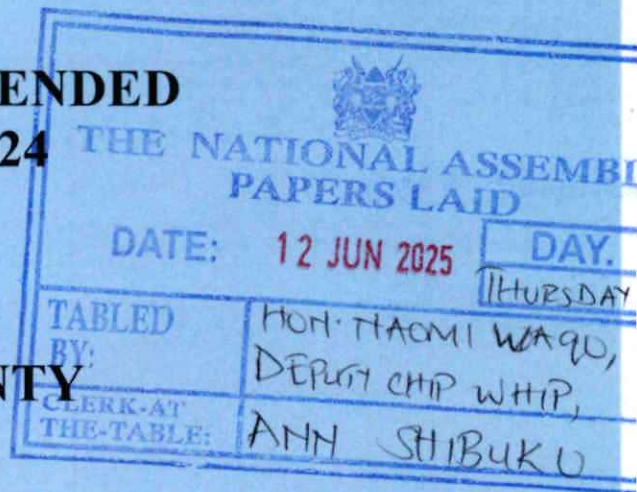 ENDED
24
THE NATIONAL ASSEMBL
PAPERS LAID
DATE: 12 JUN 2025 DAY.
THURSDAY
TABLED BY: HON. NAOMI WAQO,
DEPUTY CHIP WHIP,
NTY
CLERK-AT THE-TABLE: ANN SHIBUKO